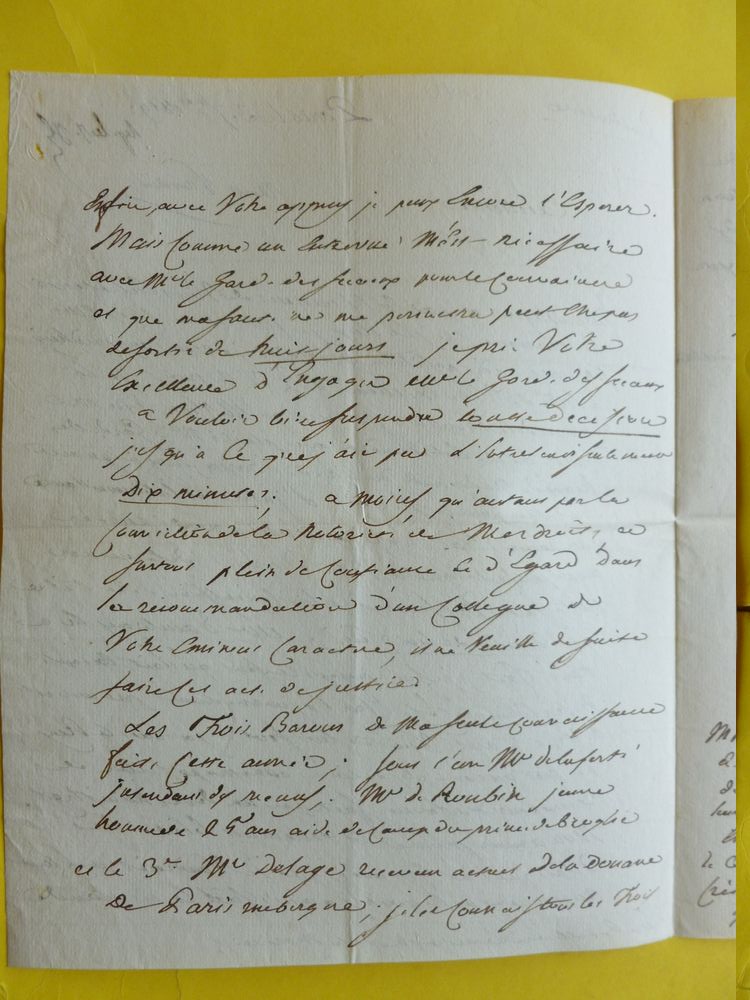 Enfin, avec Votre appuy je peux Encore l'Esperer.
Mais Comme un Entrevue M'est necessaire
avec Mr le Garde des sceaux pour le Convaincre
et que ma santé ne me permettra peut Etre pas
de sortir de huit jours je prie Votre
Excellence d'Engager Mr le Garde des sceaux
a Vouloir bien suspendre toute décision
jusqu'à Ce que j'aie pu l'Entretenir seulement
Dix minutes; a moins qu'avant par la
Conviction de la Notoriété de Mes droits, et
surtout plein de Confiance Et d'Egard Dans
la recommandation d'un Collegue de
Votre Eminent Caractere, il ne Veuille de suite
faire Cet acte de justice.
Les Trois Barons de Ma seule connaissance
faits Cette année; sont l'un Mr de laferté
intendant des menus; Mr de Roubin jeune
homme de 25 ans aide de Camp du prince de broglie
et le 3me Mr Delage receveur actuel de la Douane
De Paris; je les Connais tous les Trois